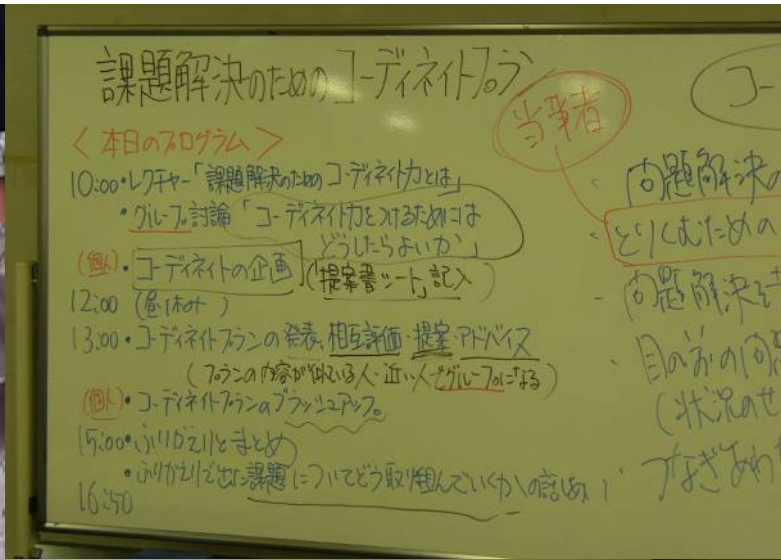 課題解決のためのコーディネイトプラ
当事者
コー
<本日のプログラム>
10:00・レクチャー「課題解決のためのコーディネイト力とは」
・グループ討論「コーディネイト力をつけるためには
どうしたらよいか」
(個人)・コーディネイトの企画(「提案書シート」記入)
12:00(昼休み)
13:00・コーディネイトプランの発表、相互評価・提案・アドバイス
(プランの内容が似ている人・近い人でグループになる)
(個人)・コーディネイトプランのブラッシュアップ。
15:00・ふりかえりとまとめ
・ふりかえりで出た課題についてどう取り組んでいくかの話し合い
16:50
・問題解決の
とりくむための
・問題解決を
・目の前の問
(状況のせ
・つなぎあわ